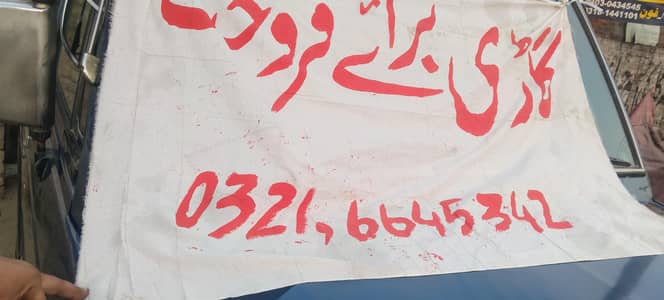 گاڑی برائے فروخت
0321,6645342
03-0434545
فون 0318-1441101